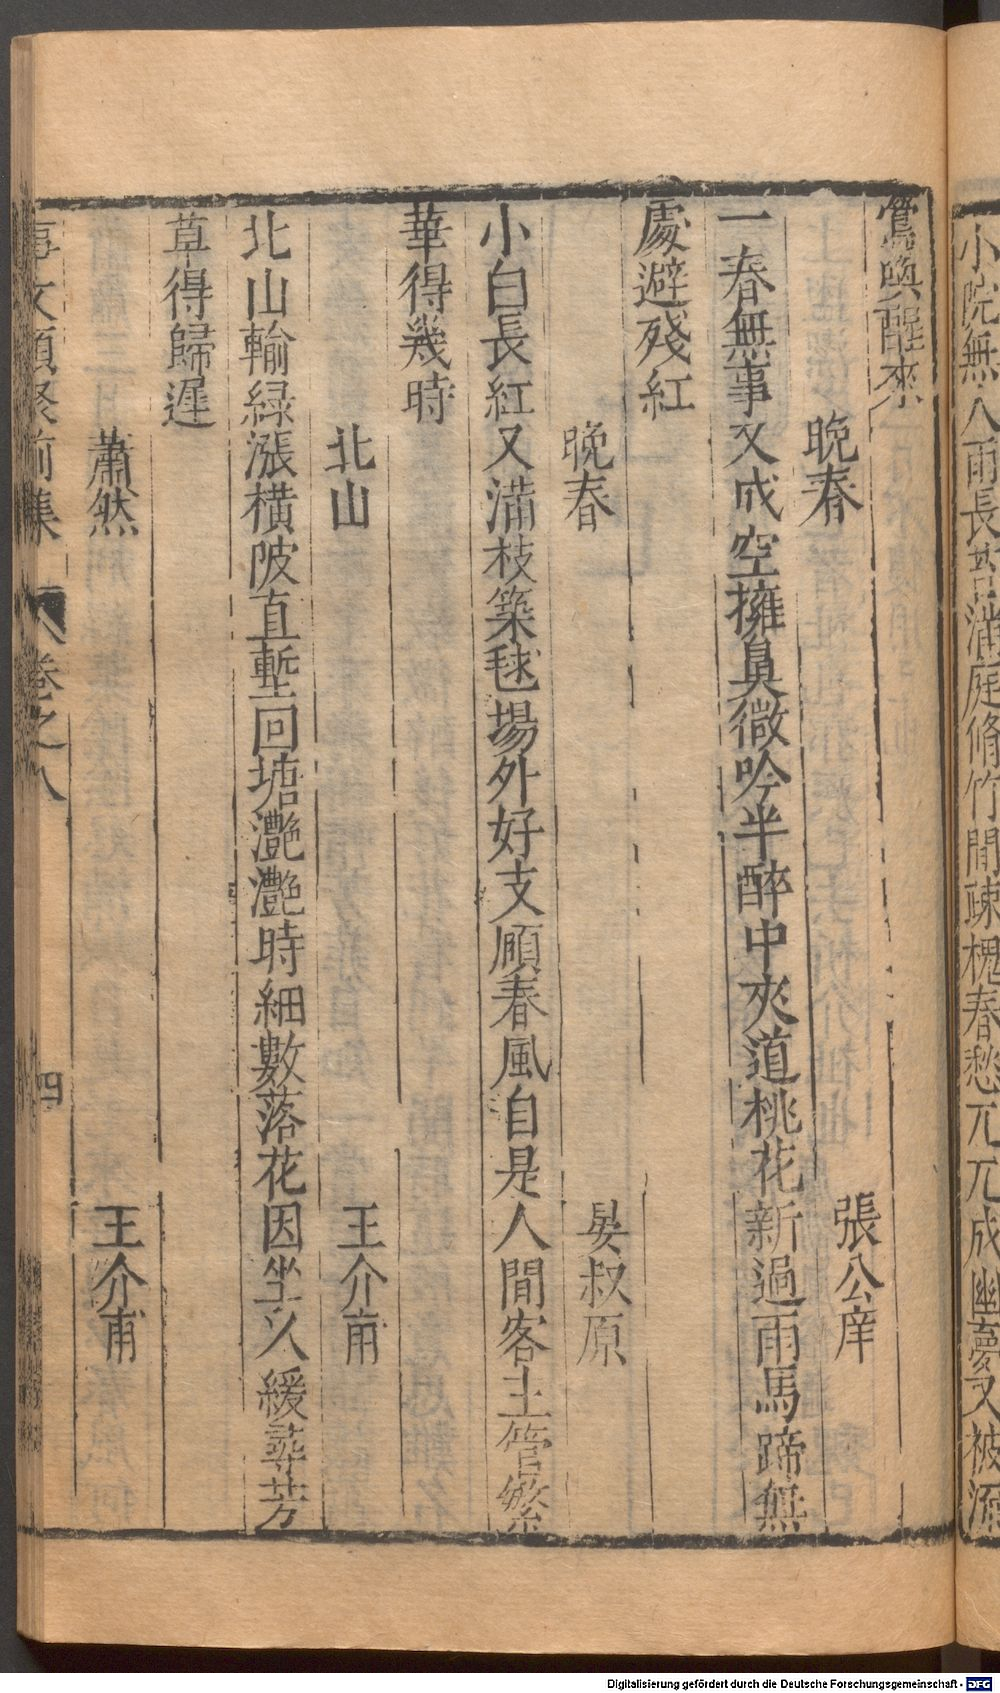 小院無人雨長苔滿庭脩竹間疎槐春愁兀兀成幽夢又被流
鶯喚醒來
晚春 張公庠
一春無事又成空擁鼻微吟半醉中夾道桃花新過雨馬蹄無
處避殘紅
晚春 晏叔原
小白長紅又滿枝築毬場外好支頤春風自是人間客主管繁
華得幾時
北山 王介甫
北山輸綠漲橫陂直塹回塘灩灩時細數落花因坐久緩尋芳
草得歸遲
蕭然 王介甫
事文類聚前集 卷之八 四
Digitalisierung gefördert durch die Deutsche Forschungsgemeinschaft - DFG